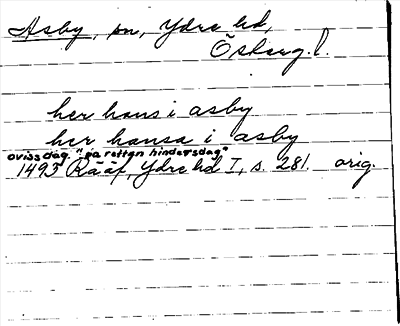 Asby, sn, Ydre hd,
Österg.l.
her hans i asby
her hansa i asby
ovissdag "på rettan hindersdag"
1495 Rääf, Ydre hd I, s. 281. orig.